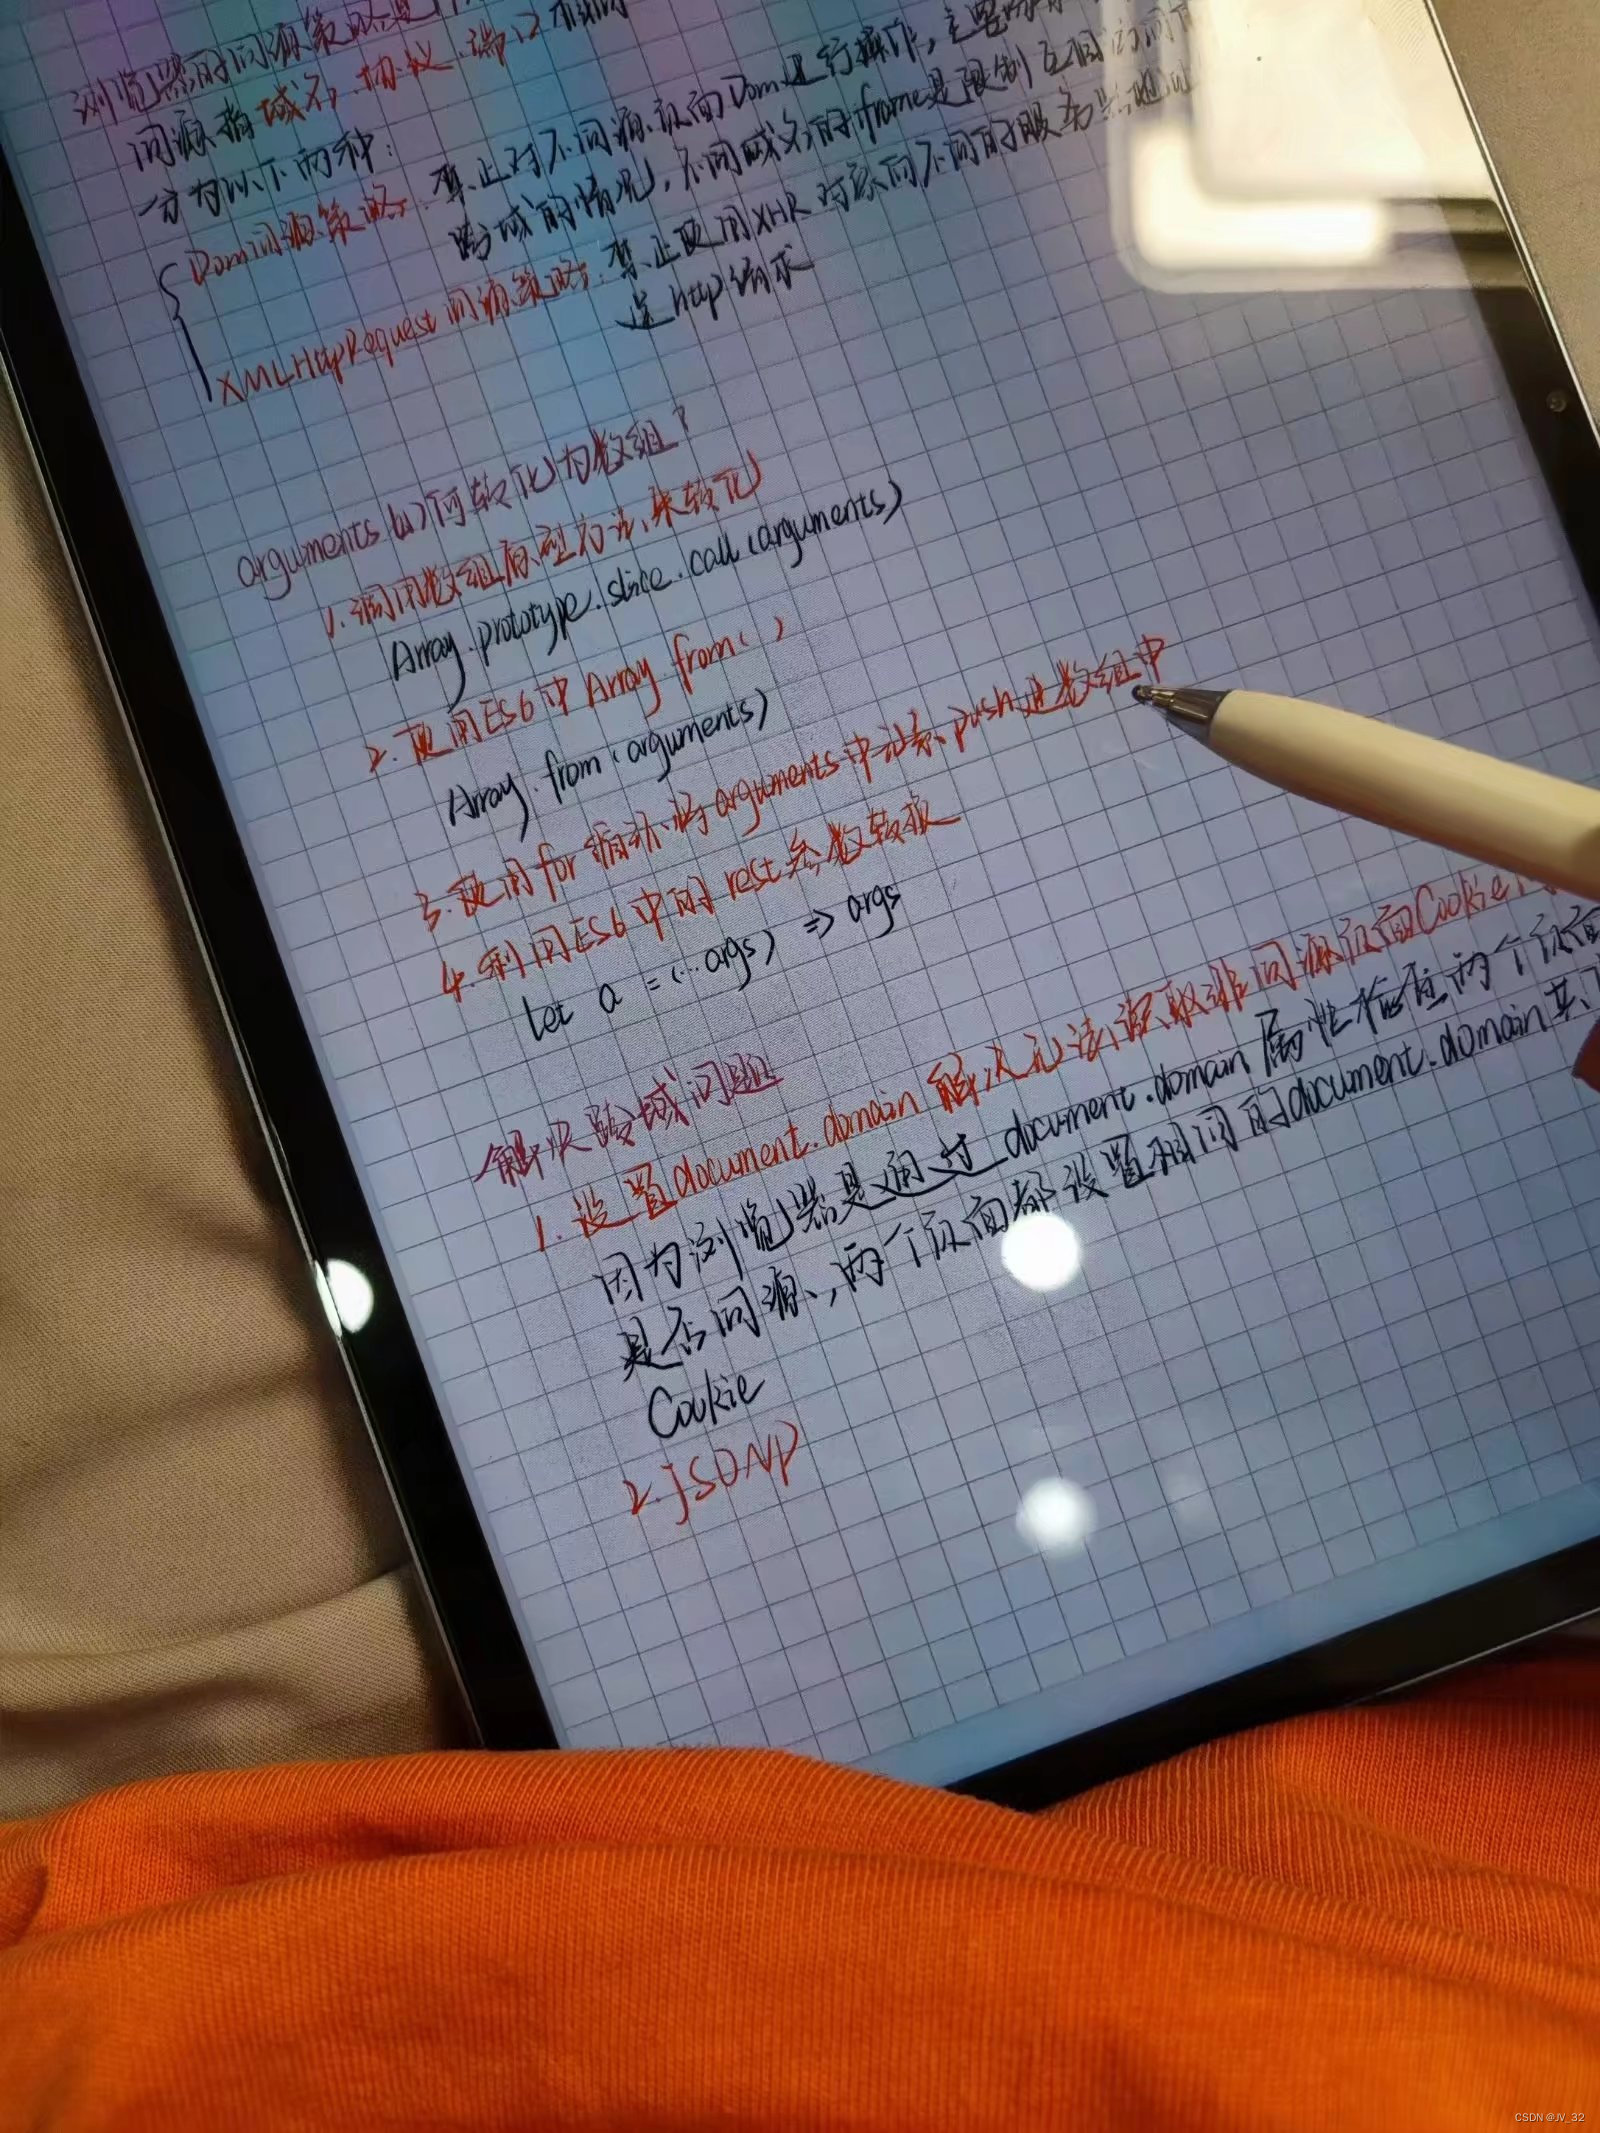 浏览器的同源策略是
同源指域名、协议、端口相同
分为以下两种：
Dom同源策略：禁止对不同源页面Dom进行操作，主要
跨域的情况，不同域名的iframe是限制互相访问
XMLHttpRequest同源策略：禁止使用XHR对象向不同的服务器地址
送http请求
arguments如何转化为数组？
1.调用数组原型方法来转化
Array.prototype.slice.call(arguments)
2.使用ES6中Array.from()
Array.from(arguments)
3.使用for循环将arguments中元素push进数组中
4.利用ES6中的rest参数转换
let a = (...args) => args
解决跨域问题
1.设置document.domain解决无法读取非同源页面Cookie
因为浏览器是通过document.domain属性检查两个页面
是否同源，两个页面都设置相同的document.domain共
Cookie
2.JSONP
CSDN @JV_32